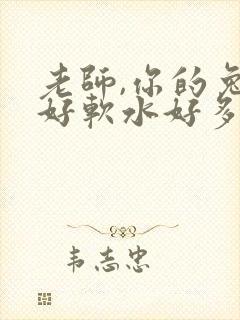 老師,你的兔
好軟水好多
韦志忠